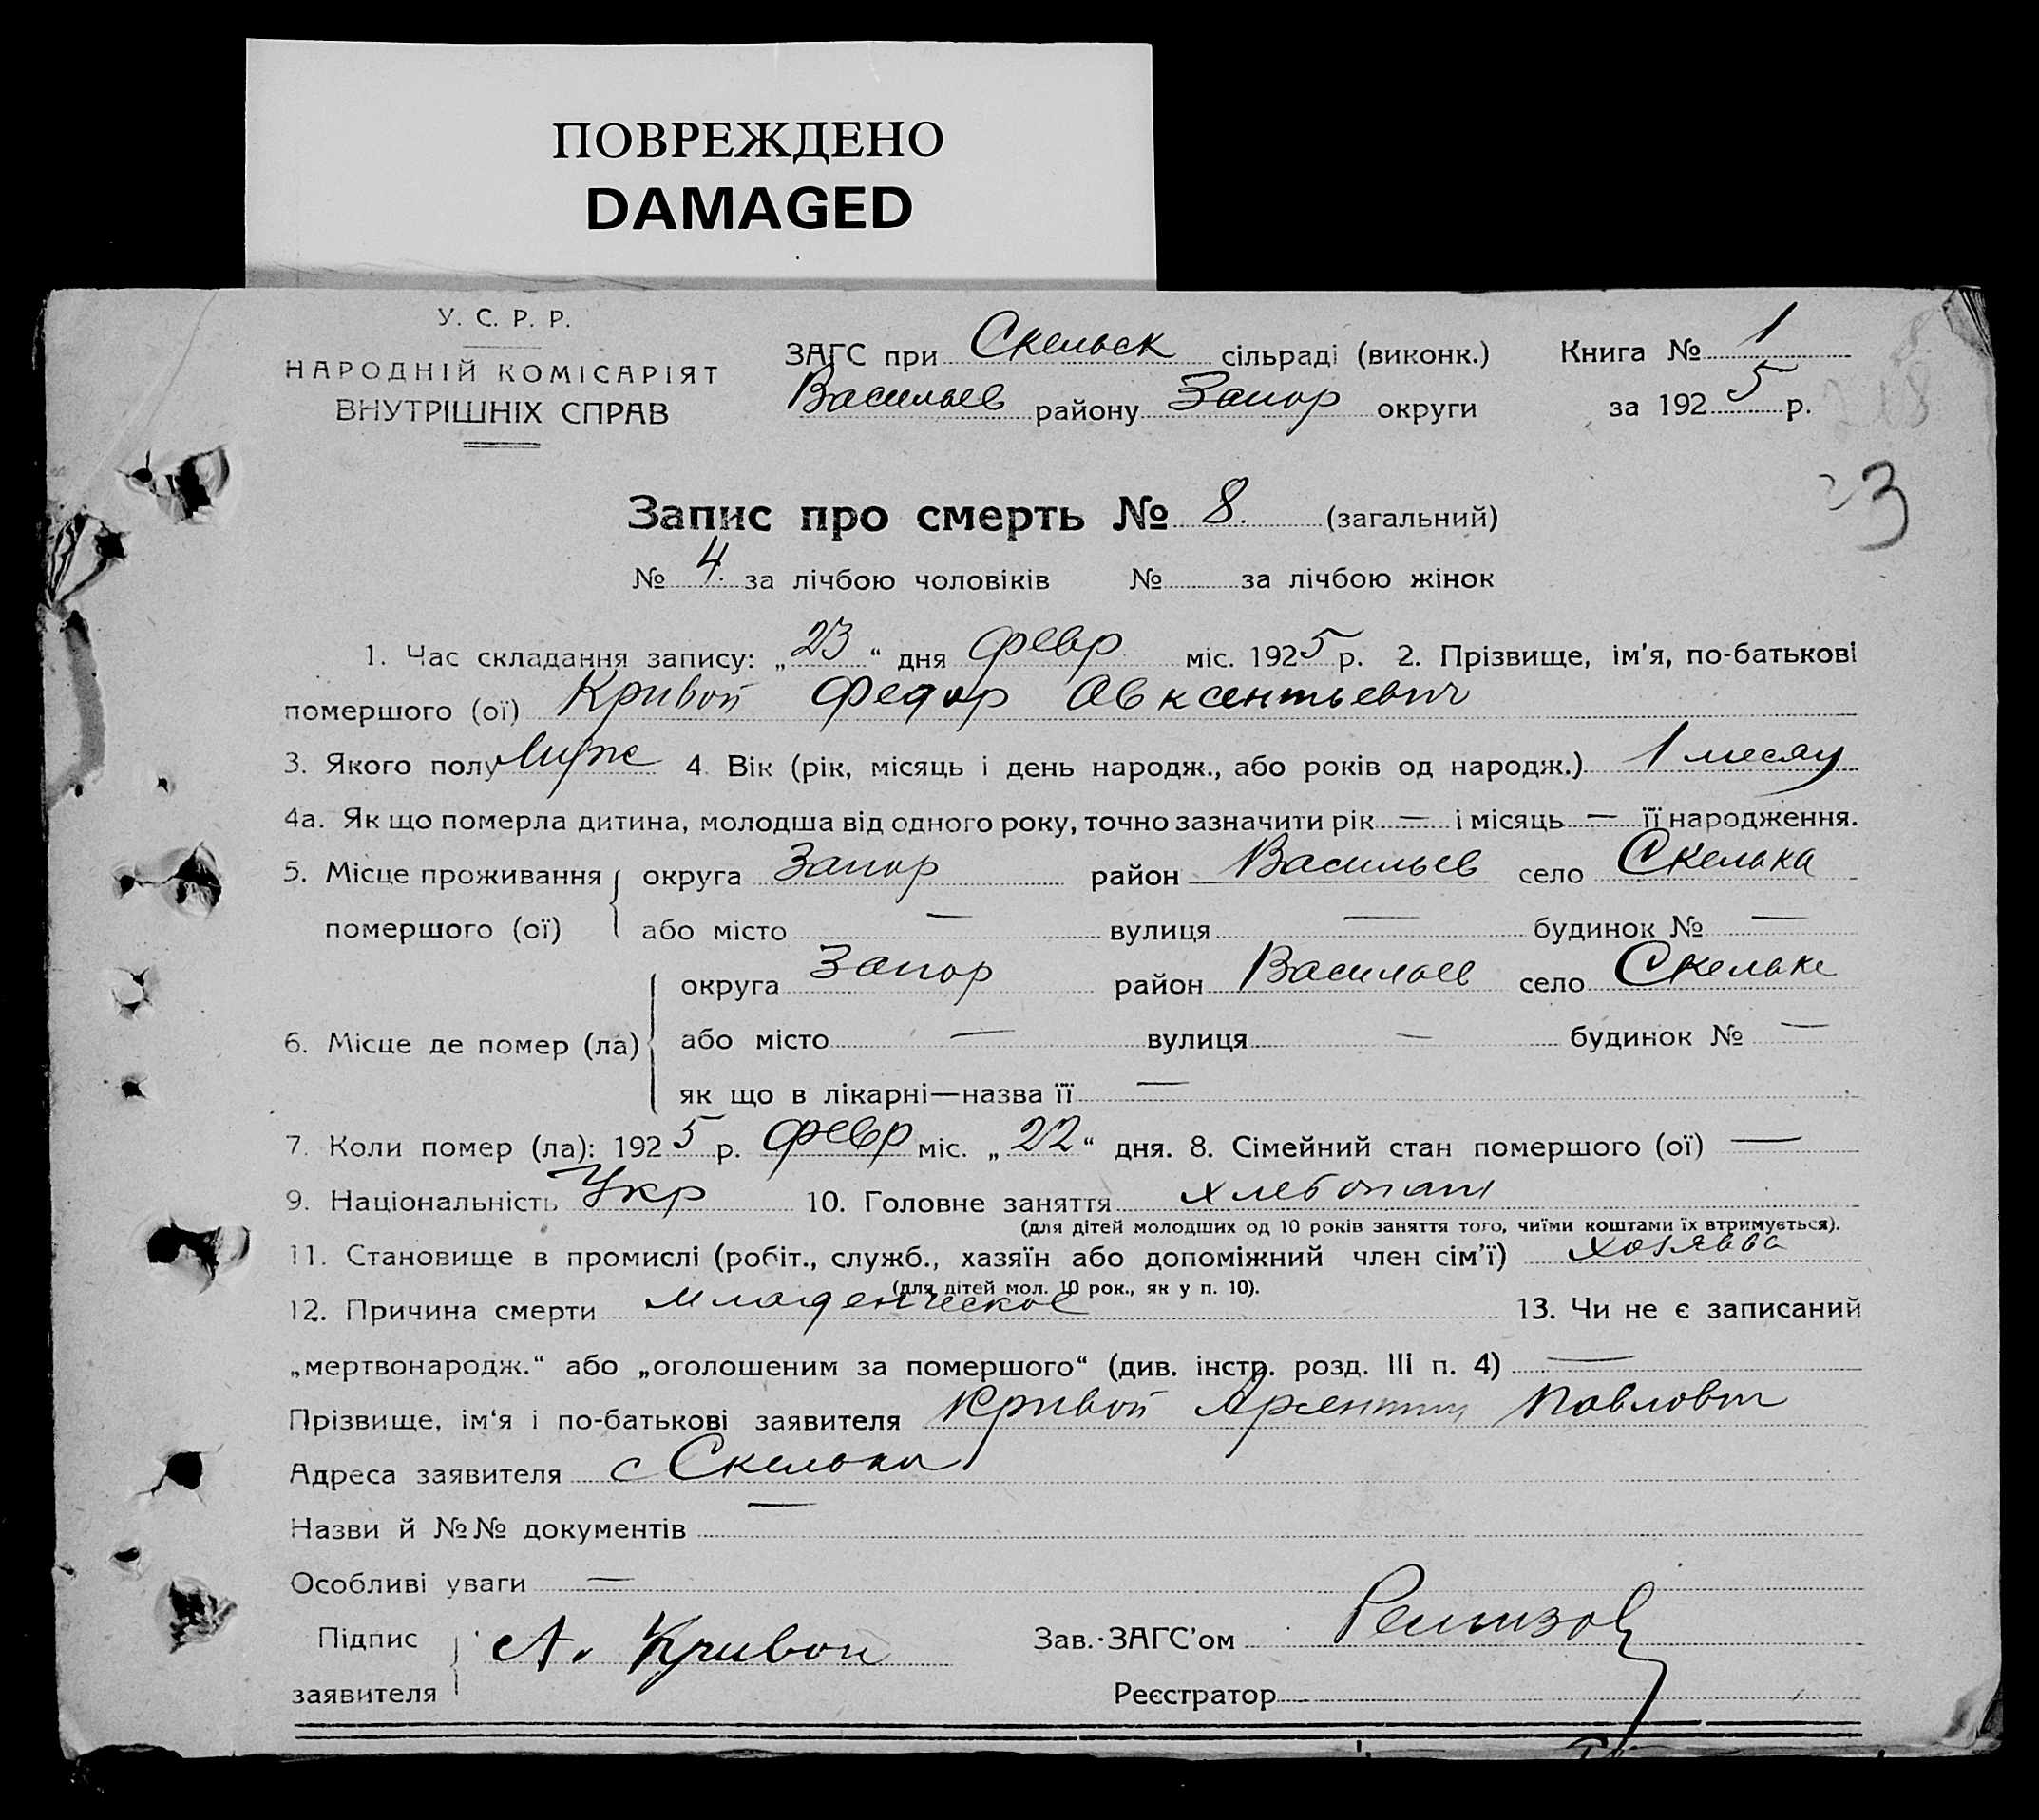 ПОВРЕЖДЕНО
DAMAGED
У. С. Р. Р.
НАРОДНІЙ КОМІСАРІЯТ
ВНУТРІШНІХ СПРАВ
ЗАГС при Скельск сільраді (виконк.) Книга № 1
Васильев району Запор округи за 1925 р.
218
23
Запис про смерть № 8. (загальний)
№ 4. за лічбою чоловіків № за лічбою жінок
1. Час складання запису: „23“ дня февр міс. 1925 р. 2. Прізвище, ім'я, по-батькові
помершого (ої) Кривой Федор Авксентьевич
3. Якого полу муж 4. Вік (рік, місяць і день народж., або років од народж.) 1 месяц
4а. Як що померла дитина, молодша від одного року, точно зазначити рік — і місяць — її народження.
5. Місце проживання округа Запор район Васильев село Скелька
помершого (ої) або місто — вулиця — будинок № —
округа Запор район Васильев село Скельке
6. Місце де помер (ла) або місто — вулиця — будинок № —
як що в лікарні—назва її —
7. Коли помер (ла): 1925 р. февр міс. „22“ дня. 8. Сімейний стан помершого (ої) —
9. Національність Укр 10. Головне заняття хлебопаш
(для дітей молодших од 10 років заняття того, чиїми коштами їх втримується).
11. Становище в промислі (робіт., служб., хазяїн або допоміжний член сім'ї)
(для дітей мол. 10 рок., як у п. 10).
12. Причина смерти младенческое 13. Чи не є записаний
„мертвонародж.“ або „оголошеним за помершого“ (див. інстр. розд. III п. 4) —
Прізвище, ім'я і по-батькові заявителя Кривой Павлович
Адреса заявителя с Скельки
Назви й №№ документів —
Особливі уваги —
Підпис А. Кривой Зав. ЗАГС'ом
заявителя Реєстратор